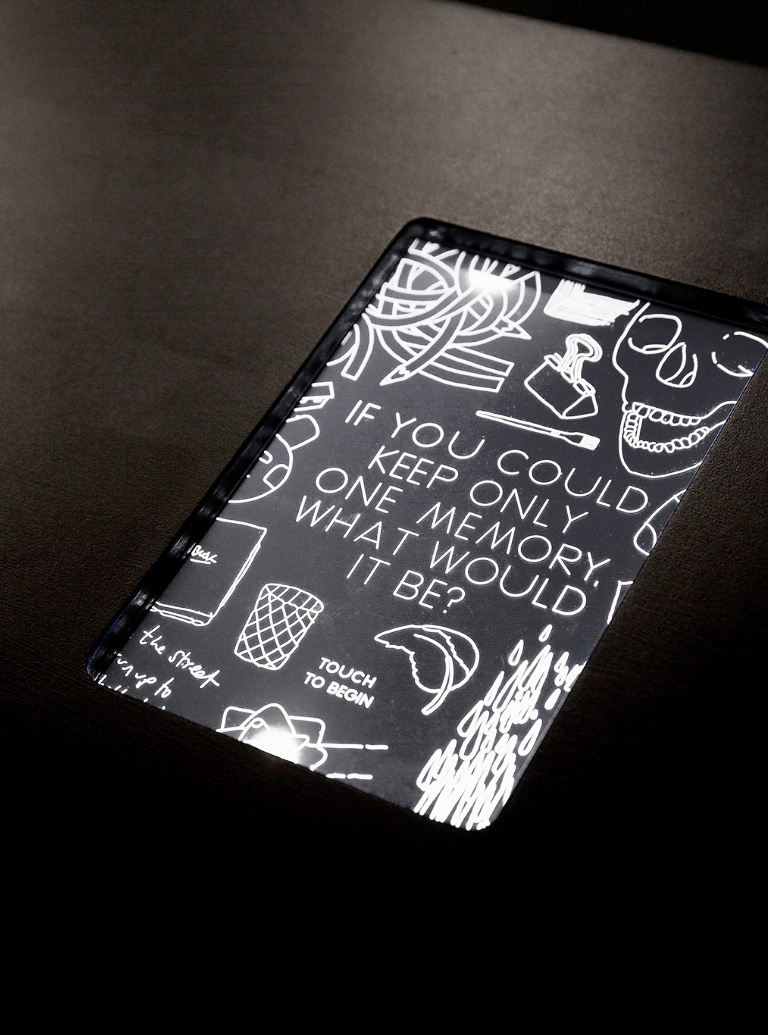 IF YOU COULD
KEEP ONLY
ONE MEMORY,
WHAT WOULD
IT BE?
the street
up to
TOUCH
TO BEGIN